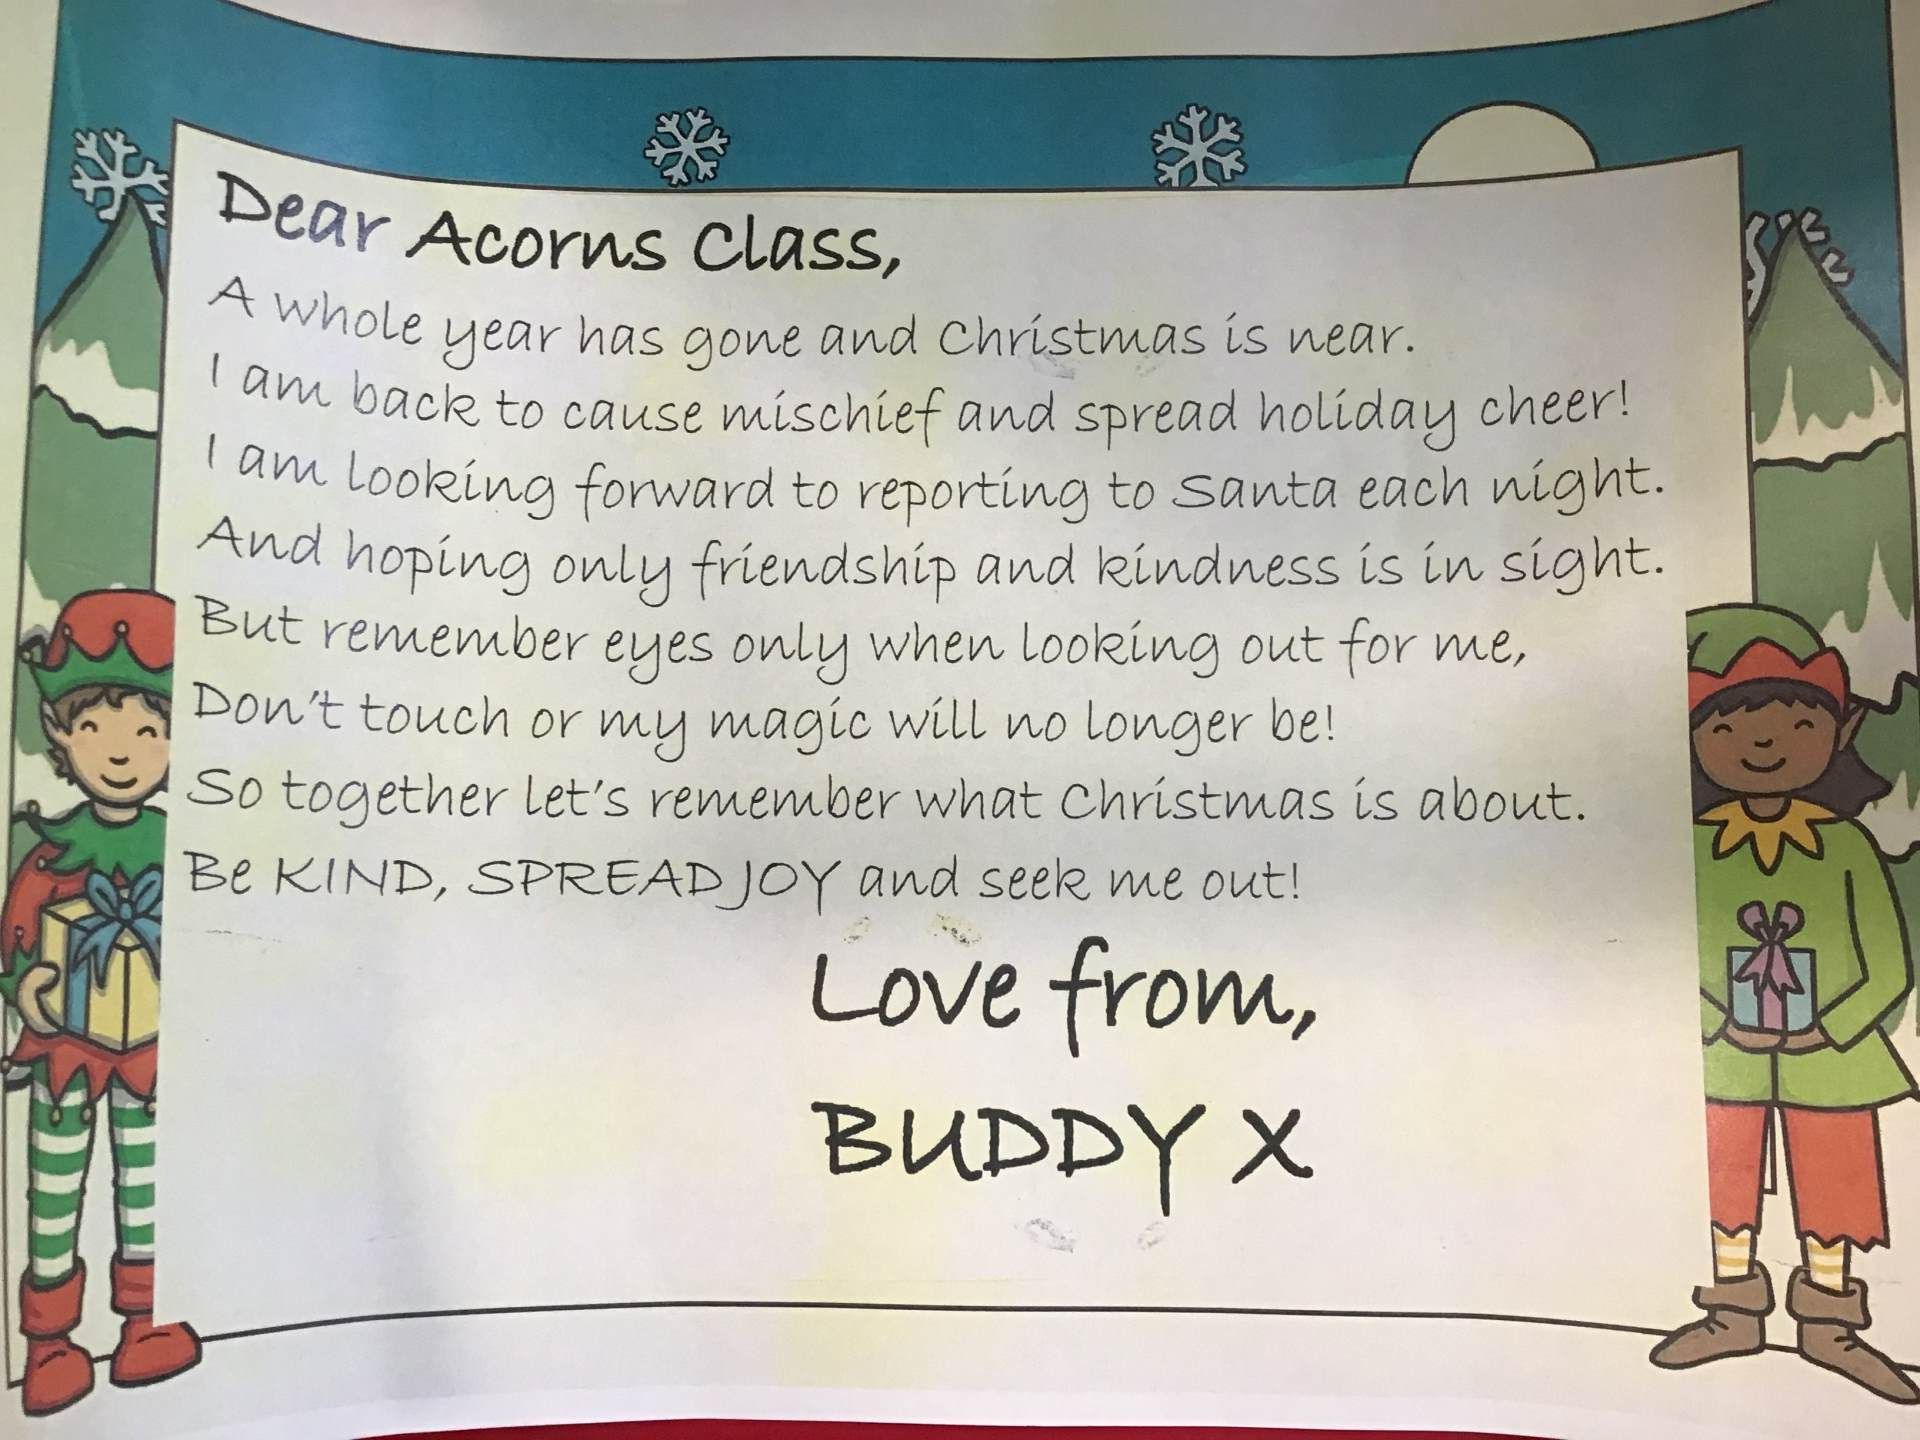 Dear Acorns Class,
A whole year has gone and Christmas is near.
I am back to cause mischief and spread holiday cheer!
I am looking forward to reporting to Santa each night.
And hoping only friendship and kindness is in sight.
But remember eyes only when looking out for me,
Don't touch or my magic will no longer be!
So together let's remember what Christmas is about.
Be KIND, SPREAD JOY and seek me out!
Love from,
BUDDY X